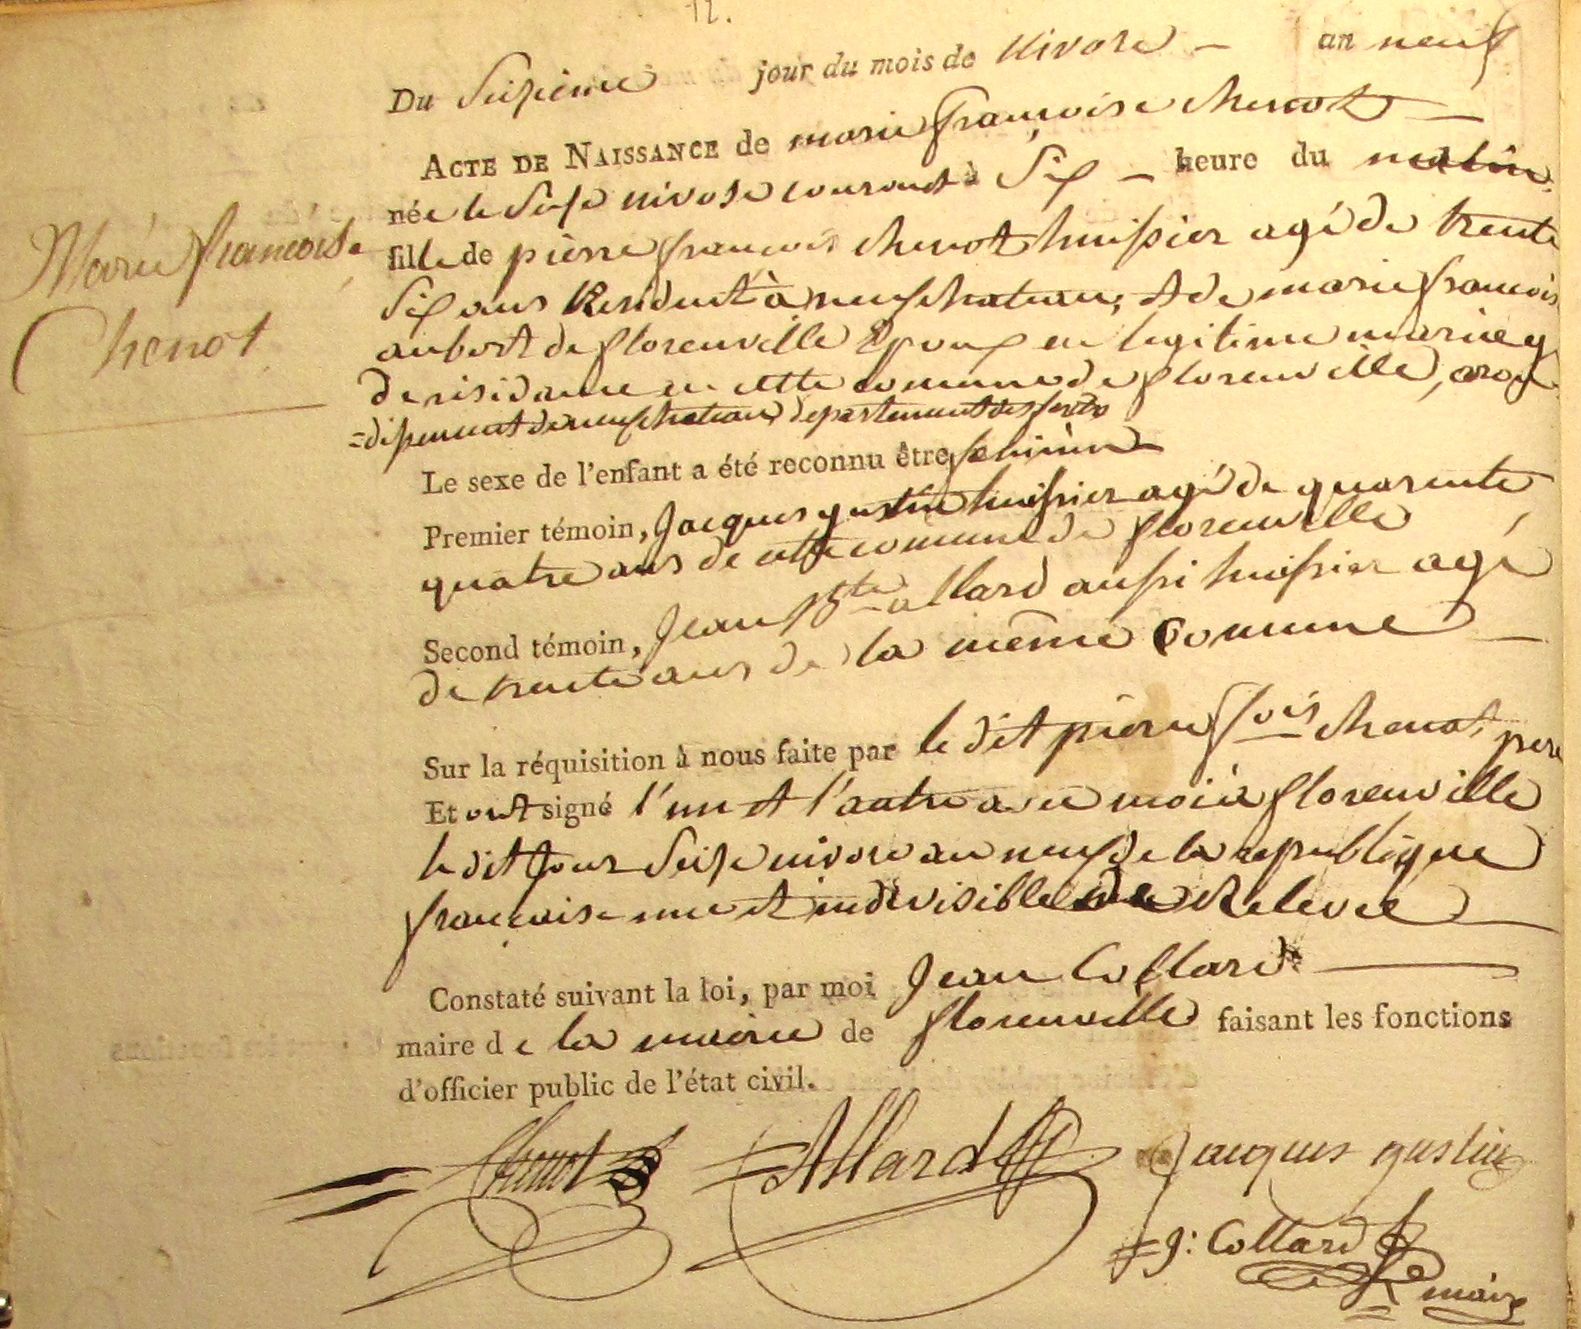 12.
Du Seizieme jour du mois de Nivose – an neuf
ACTE DE NAISSANCE de marie françoise chenot
née le Seize nivose courant à Six – heure du matin
fille de pierre françois chenot huissier agé de trente
Six ans Residant à neufchateau, et de marie françoise
aubert de florenville Epoux en legitime mariage
de residance en cette commune de florenville, aron
=dissement de neufchateau departement des forets
Le sexe de l'enfant a été reconnu être feminin
Premier témoin, Jacques gustin huissier agé de quarante
quatre ans de cette commune de florenville
Second témoin, Jean Bte allard aussi huissier agé
de trente ans de la même Comune
Sur la réquisition à nous faite par le dit pierre fois chenot, pere
Et ont signé l'un et l'autre avec moi à florenville
le dit Jour Seize nivose an neuf de la republique
françaises une et indivisible de Relevée
Constaté suivant la loi, par moi Jean Collard
maire de la mairie de florenville faisant les fonctions
d'officier public de l'état civil.
Marie francoise
Chenot
Chenot Allard Jacques gustin
J: Collard
maire